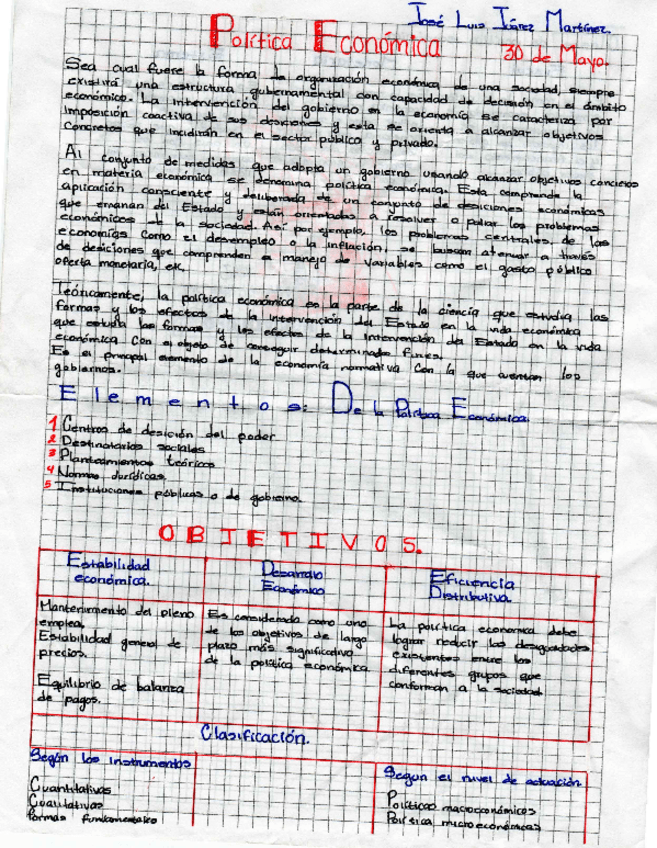 José Luis Juárez Martínez.
Política Económica 30 de Mayo.
Sea cual fuere la forma de organización económica de una sociedad, siempre
existirá una estructura gubernamental con capacidad de decisión en el ámbito
económico. La intervención del gobierno en la economía se caracteriza por
imposición coactiva de sus desiciones y esta se orienta a alcanzar objetivos
concretos que incidirán en el sector público y privado.
Al conjunto de medidas que adopta un gobierno usando alcanzar objetivos concretos
en materia económica se denomina política económica. Esta comprende la
aplicación consciente y deliberada de un conjunto de desiciones económicas
que emanan del Estado y están orientadas a resolver o paliar los problemas
económicos de la sociedad. Así por ejemplo, los problemas centrales de las
economías como el desempleo o la inflación, se buscan atenuar a través
de desiciones que comprenden a manejo de variables como el gasto público
oferta monetaria, etc.
Teóricamente, la política económica es la parte de la ciencia que estudia las
formas y los efectos de la intervención del Estado en la vida económica
que estudia las formas y los efectos de la intervención del Estado en la vida
económica con el objeto de conseguir determinados fines.
Es el principal elemento de la economía normativa con la que cuentan los
gobiernos.
Elementos: De la Política Económica.
1 Centros de desición del poder
2 Destinatarios sociales
3 Planteamientos teóricos
4 Normas Jurídicas.
5 Instituciones públicas o de gobierno.
OBJETIVOS.
Estabilidad
económica.
Desarrollo
Económico
Eficiencia
Distributiva
Mantenimiento del pleno
empleo.
Estabilidad general de
precios.
Equilibrio de balanza
de pagos.
Es considerada como uno
de los objetivos de largo
plazo más significativo
de la política económica.
La política economica debe
lograr reducir las desigualdades
existentes entre los
diferentes grupos que
conforman a la sociedad
Clasificación.
Según los instrumentos
Cuantitativas
Cualitativas
formas fundamentales
Según el nivel de actuación
Políticas macroeconómicas
Política microeconómicas